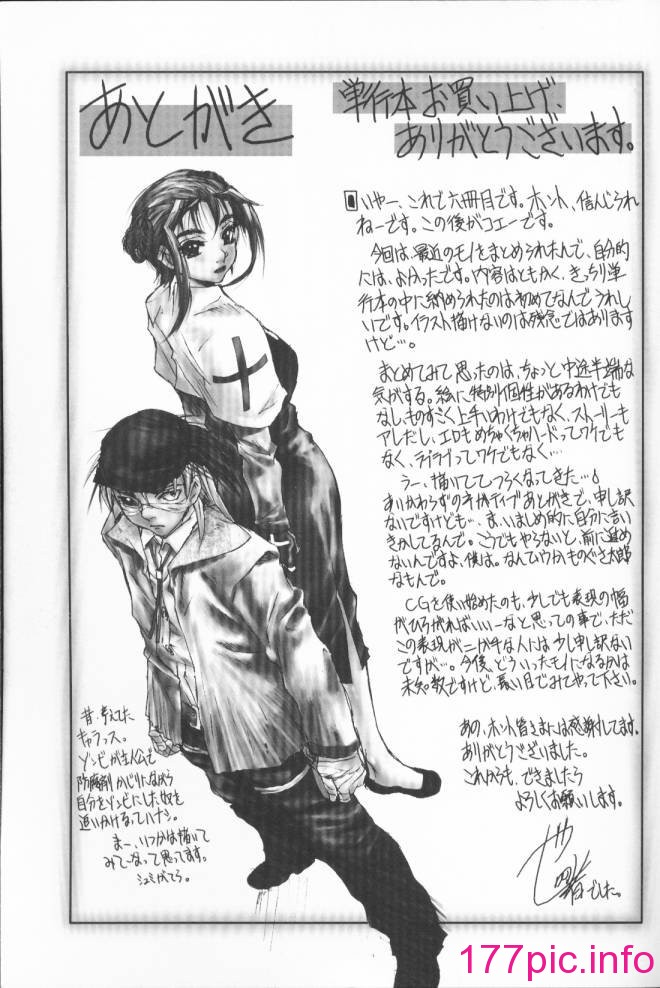 あとがき
単行本お買い上げ、
ありがとうございます。
いやー、これで六冊目です。ホント、信じられ
ねーです。この後がコエーです。
今回は、最近のモノをまとめられたんで、自分的
には、よかったです。内容はともかく、きっちり単
行本の中に納められたのは初めてなんでうれし
いです。イラスト描けないのは残念ではあります
けど…。
まとめてみて思ったのは、ちょっと中途半端な
気がする。絵に特別個性があるわけでも
なし、ものすごく上手いわけでもなく、ストーリーも
アレだし、エロもめちゃくちゃハードってワケでも
なく、ラブラブってワケでもなく…
うー、描いててつらくなってきた…
あいかわらずのネガティブあとがきで、申し訳
ないですけども…ま、いましめ的に自分に言い
きかしてるんで。こうでもやらないと、前に進め
ないんですよ、僕は。なんてゆうかものぐさ太郎
なもんで。
CGを使い始めたのも、少しでも表現の幅
がひろがればいいーなと思っての事で、ただ
この表現がニガ手な人には少し申訳ない
ですが…。今後、どういったモノになるかは
未知数ですけど、長い目でみてやって下さい。
あの、ホント皆さまには感謝してます。
ありがとうございました。
これからも、できましたら
よろしくお願いします。
でした。
昔、考えてた
キャラっス。
ゾンビが主人公で
防腐剤かじりながら
自分をゾンビにした奴を
追いかけるっていう。
まー、いつかは描いて
みてーなって思ってます。
シュミがてら。
177pic.info